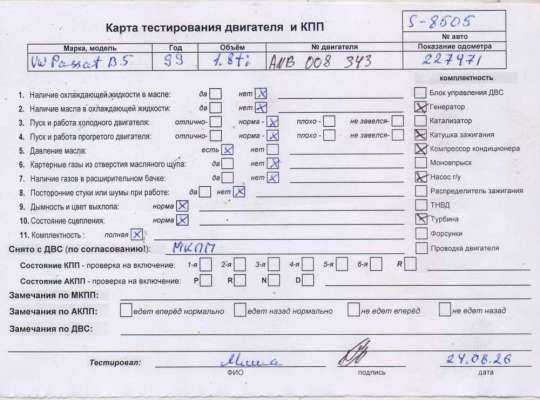 Карта тестирования двигателя и КПП
S-8505
№ авто
Марка, модель Год Объём № двигателя Показание одометра
VW Passat B5 99 1.8ti ANB 008 343 227471
КОМПЛЕКТНОСТЬ
1. Наличие охлаждающей жидкости в масле: да нет
2. Наличие масла в охлаждающей жидкости: да нет
3. Пуск и работа холодного двигателя: отлично- норма - плохо - не завелся-
4. Пуск и работа прогретого двигателя: отлично- норма - плохо - не завелся-
5. Давление масла: есть нет
6. Картерные газы из отверстия масляного щупа: да нет
7. Наличие газов в расширительном бачке: да нет
8. Посторонние стуки или шумы при работе: да нет
9. Дымность и цвет выхлопа: норма
10. Состояние сцепления: норма
11. Комплектность: полная
Блок управления ДВС
Генератор
Катализатор
Катушка зажигания
Компрессор кондиционера
Моновпрыск
Насос г/у
Распределитель зажигания
ТНВД
Турбина
Форсунки
Проводка двигателя
Снято с ДВС (по согласованию!): МКПП
Состояние КПП - проверка на включение: 1-я 2-я 3-я 4-я 5-я 6-я R
Состояние АКПП - проверка на включение: P R N D
Замечания по МКПП:
Замечания по АКПП: едет вперёд нормально едет назад нормально не едет вперёд не едет назад
Замечания по ДВС:
Тестировал: Миша 24.06.26
ФИО подпись дата